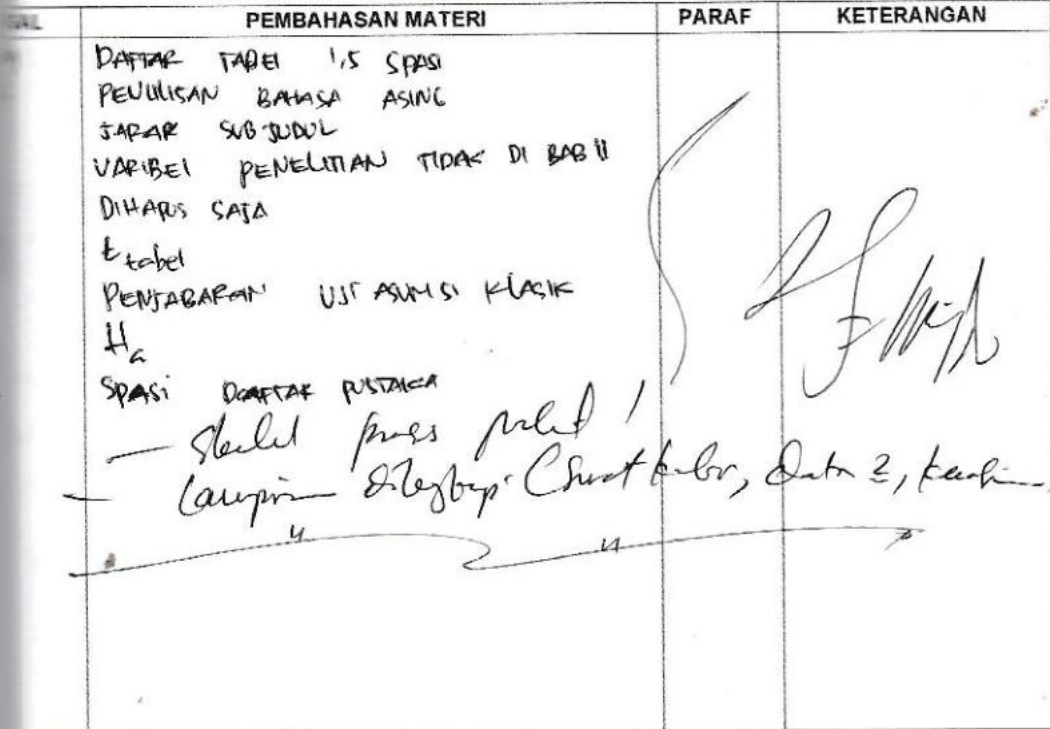 PEMBAHASAN MATERI PARAF KETERANGAN
DAFTAR TABEL 1,5 SPASI
PENULISAN BAHASA ASING
JARAK SUB JUDUL
VARIBEL PENELITIAN TIDAK DI BAB II
DIHAPUS SAJA
t tabel
PENJABARAN UJI ASUMSI KLASIK
Ha
SPASI DAAFTAR PUSTAKA
Lampiran dilengkapi (Surat